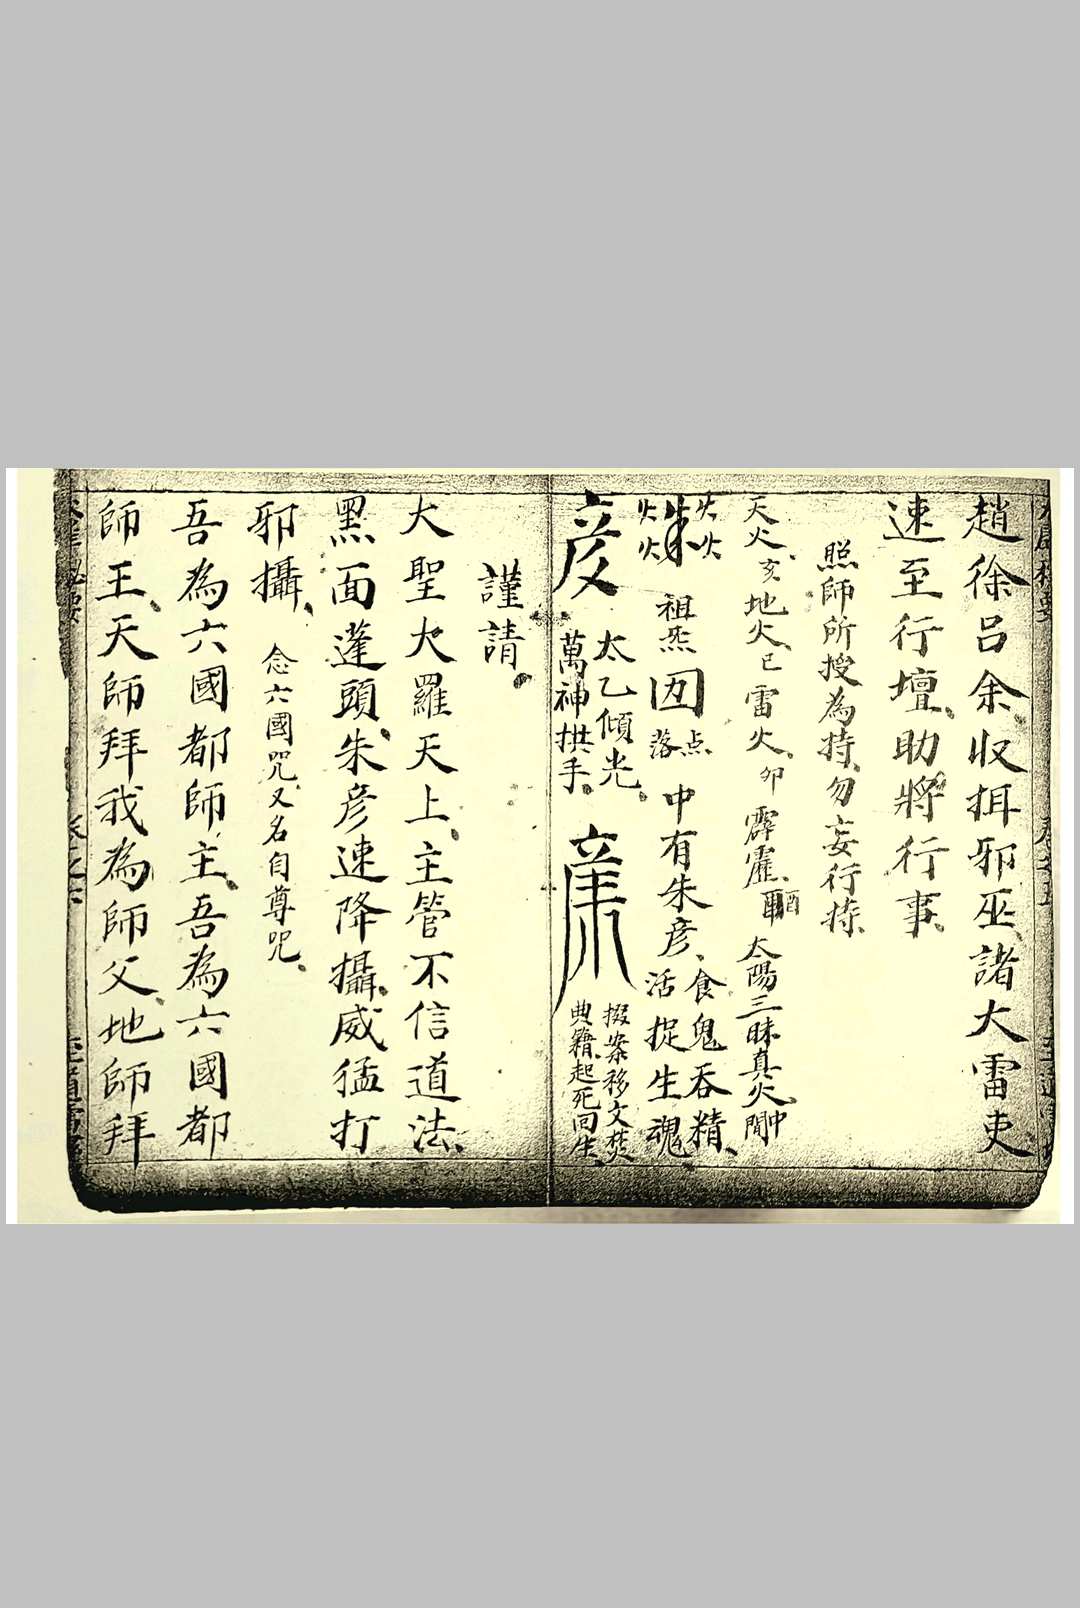 趙徐呂余收揖邪巫諸大雷吏
速至行壇助將行事
照師所授為持勿妄行持
天火亥地火巳雷火卯霹靂酉太陽三昧真火中間
朱
祖炁
点落
中有朱彦食鬼吞精
活捉生魂
彦
太乙傾光
萬神拱手
掇案移文焚
典籍起死回生
謹請
大聖大羅天上主管不信道法
黑面蓬頭朱彦速降攝威猛打
邪攝
念六國咒又名自尊咒
吾為六國都師主吾為六國都
師王天師拜我為師父地師拜